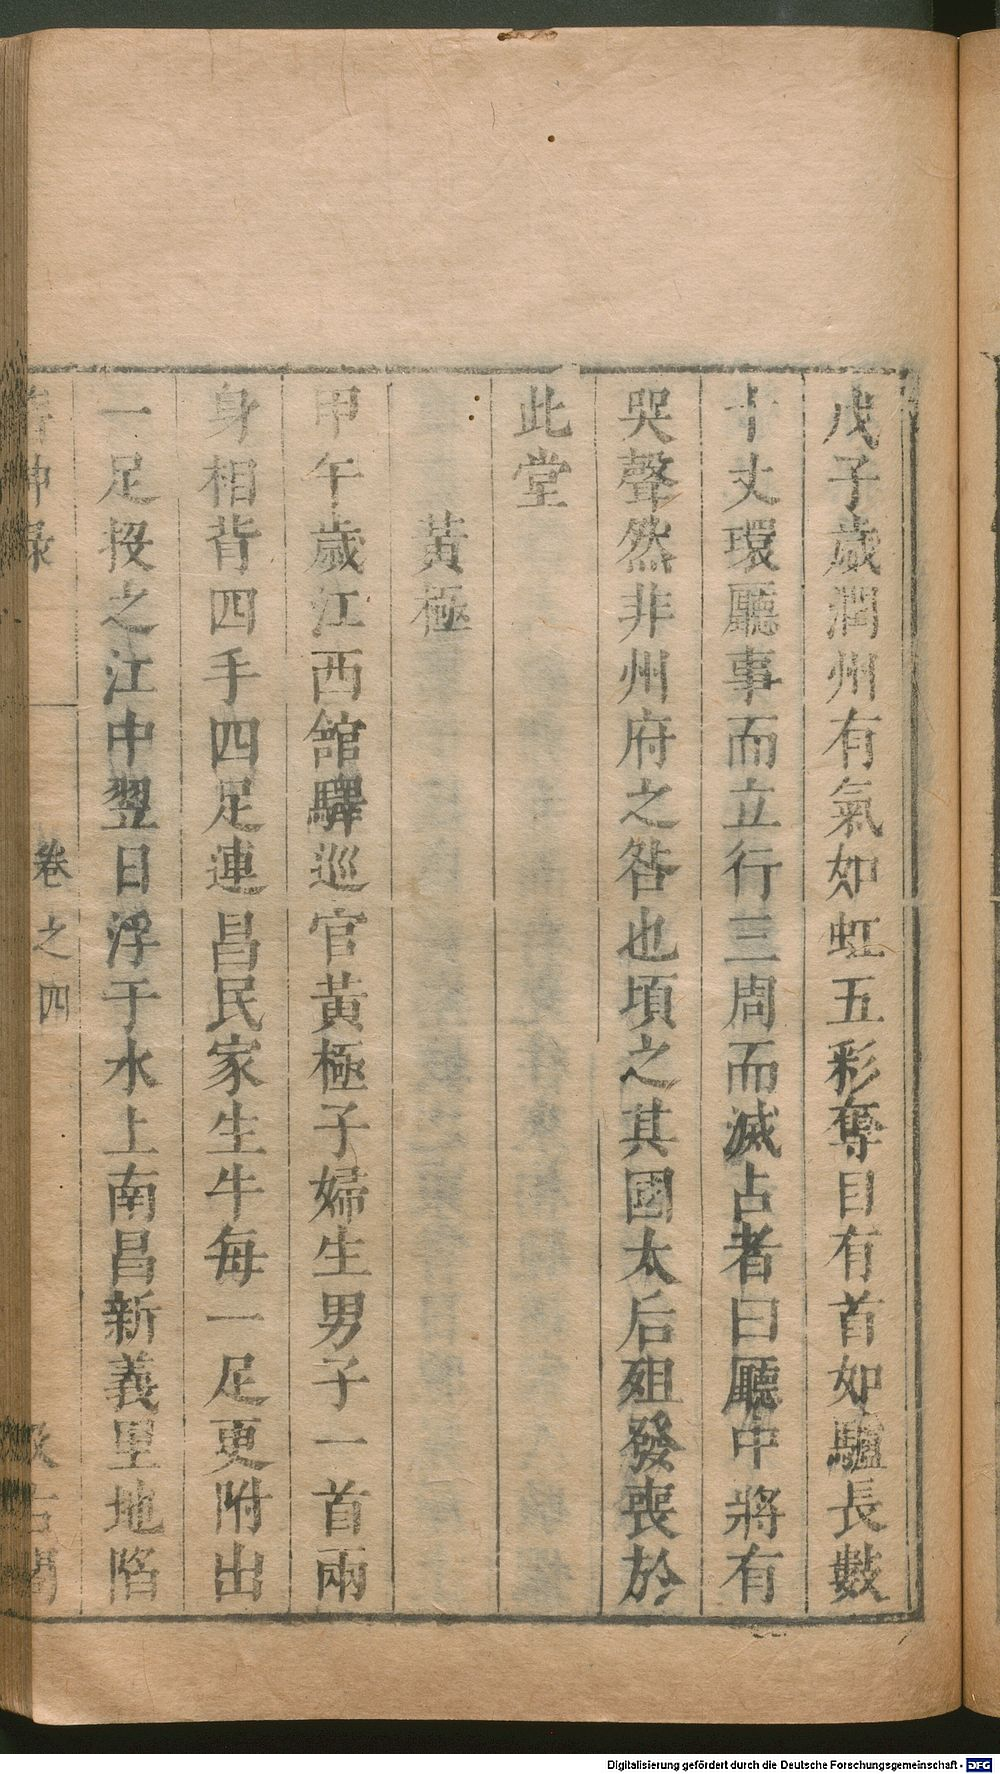 戊子歲潤州有氣如虹五彩奪目有首如驢長數
十丈環廳事而立行三周而滅占者曰廳中將有
哭聲然非州府之咎也頃之其國太后殂發喪於
此堂
黃極
甲午歲江西館驛巡官黃極子婦生男子一首兩
身相背四手四足連昌民家生牛每一足更附出
一足投之江中翌日浮于水上南昌新義里地陷
神錄 卷之四
Digitalisierung gefördert durch die Deutsche Forschungsgemeinschaft - DFG